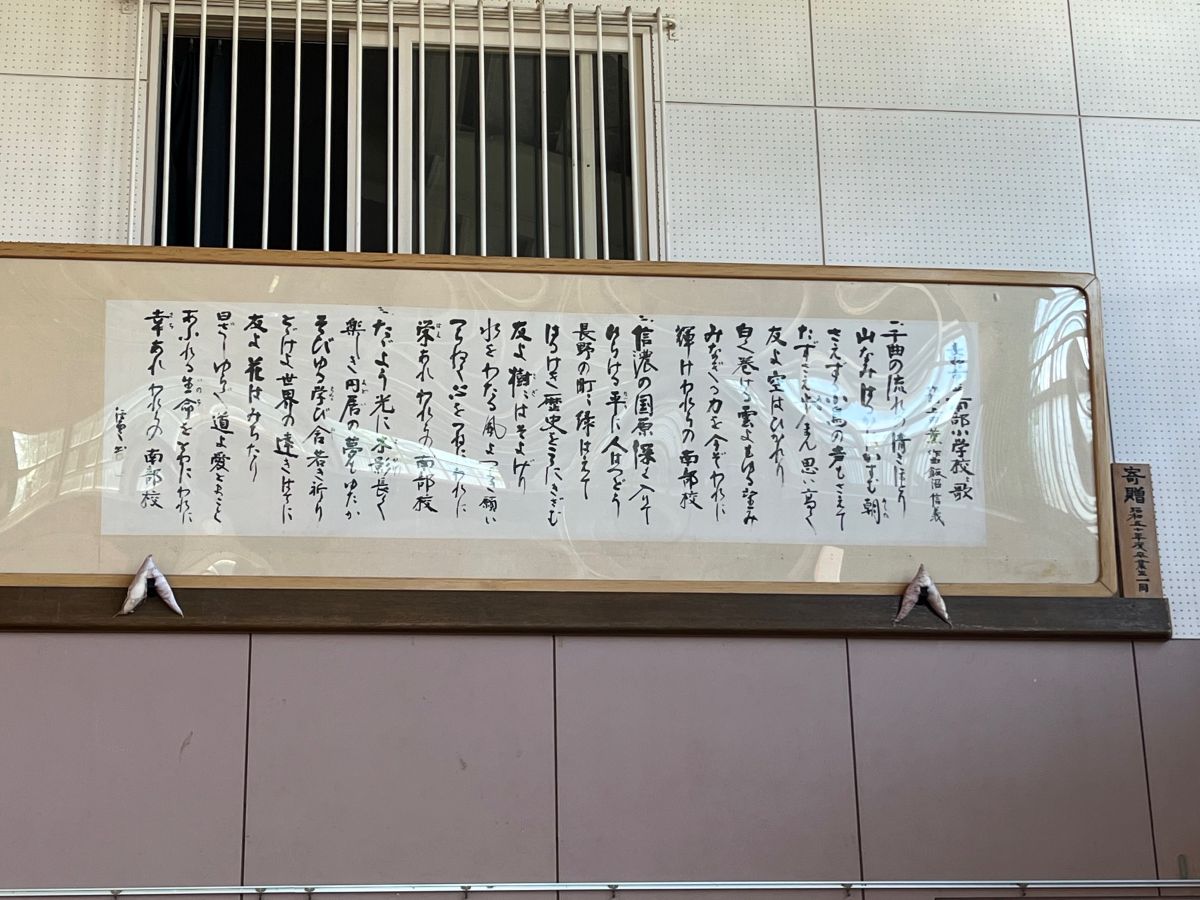 南部小学校の歌
作曲 飯沼信義
一、千曲の流れの清きほとり
山なみはるかにいずむ朝
さえずる小鳥の声もさえて
たずさえ歩まん思い高く
友よ空はひかれり
白く巻ける雲よもゆる望み
みなぎる力を今ぞわれに
輝けわれらの南部校
二、信濃の国原深く入りて
ひらける平に人はつどう
長野の町に緑ははえて
はるけき歴史をここにきざむ
友よ樹はそよげり
水をわたる風よつよき願い
つねに心をつねにわれに
栄あれわれらの南部校
三、ただよう光に木影長く
楽しき円居の夢もゆたか
そびゆる学び舎若き祈り
とどけよ世界の遠きはてに
友よ花はみちたり
日ざしゆらぐ道よ愛をふかく
あふれる生命をともにわれに
幸あれわれらの南部校
寄贈 昭和五十年度卒業生一同